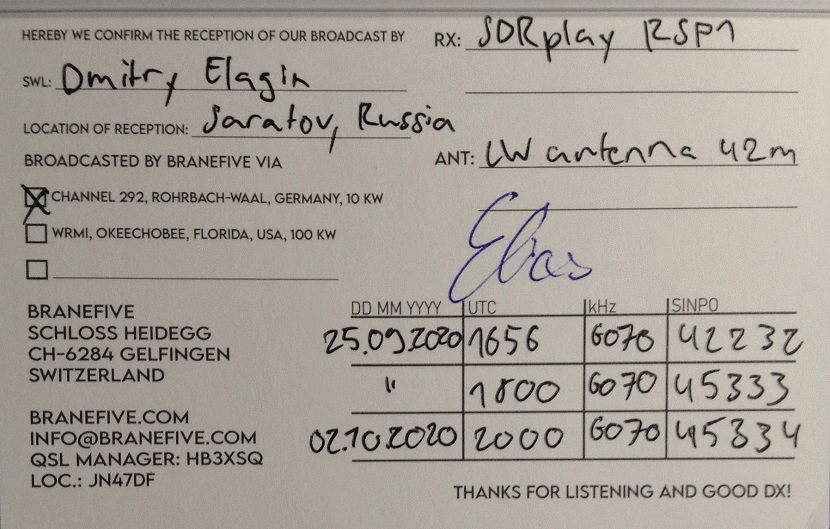 HEREBY WE CONFIRM THE RECEPTION OF OUR BROADCAST BY
SWL: Dmitry Elagin
LOCATION OF RECEPTION: Saratov, Russia
RX: SDRplay RSP1
ANT: LW antenna 42m
BROADCASTED BY BRANEFIVE VIA
CHANNEL 292, ROHRBACH-WAAL, GERMANY, 10 KW
WRMI, OKEECHOBEE, FLORIDA, USA, 100 KW
Elias
BRANEFIVE
SCHLOSS HEIDEGG
CH-6284 GELFINGEN
SWITZERLAND
BRANEFIVE.COM
INFO@BRANEFIVE.COM
QSL MANAGER: HB3XSQ
LOC.: JN47DF
DD MM YYYY UTC kHz SINPO
25.09.2020 1656 6070 42232
" 1800 6070 45333
02.10.2020 2000 6070 45334
THANKS FOR LISTENING AND GOOD DX!